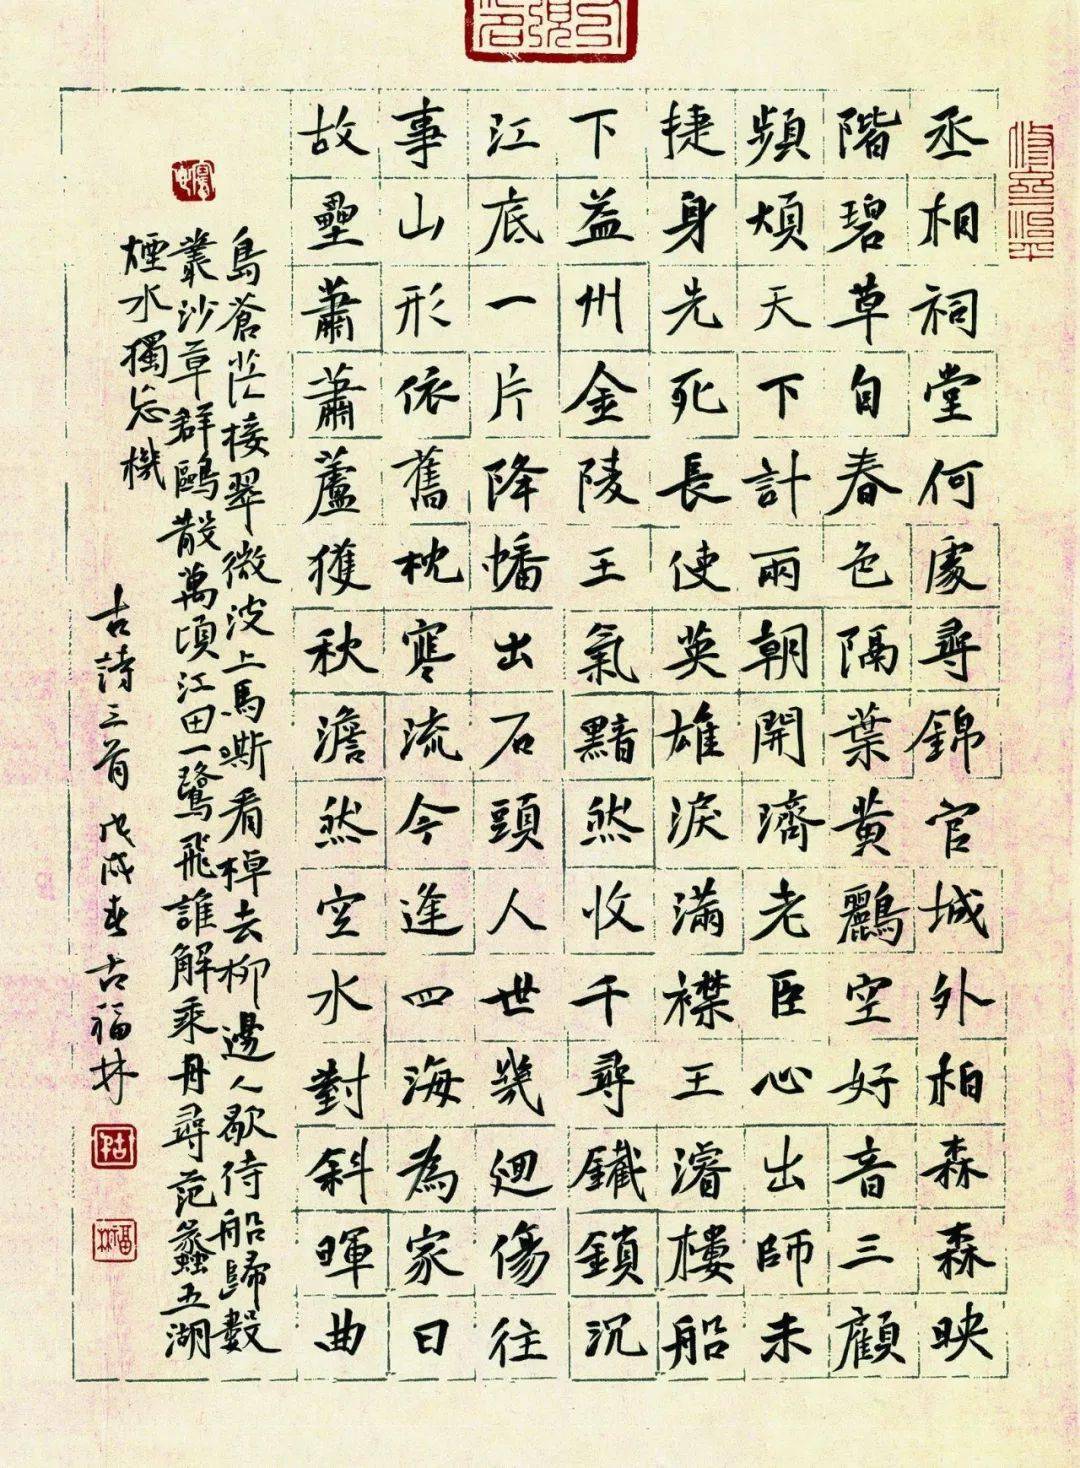 丞相祠堂何處尋錦官城外柏森森映
階碧草自春色隔葉黃鸝空好音三顧
頻煩天下計兩朝開濟老臣心出師未
捷身先死長使英雄淚滿襟王濬樓船
下益州金陵王氣黯然收千尋鐵鎖沉
江底一片降幡出石頭人世幾迴傷往
事山形依舊枕寒流今逢四海為家日
故壘蕭蕭蘆獲秋澹然空水對斜暉曲
島蒼茫接翠微波上馬嘶看棹去柳邊人歇待船歸數
叢沙草群鷗散萬頃江田一鷺飛誰解乘舟尋范蠡五湖
煙水獨忘機
古詩三首 戊戌春 古福林
福林